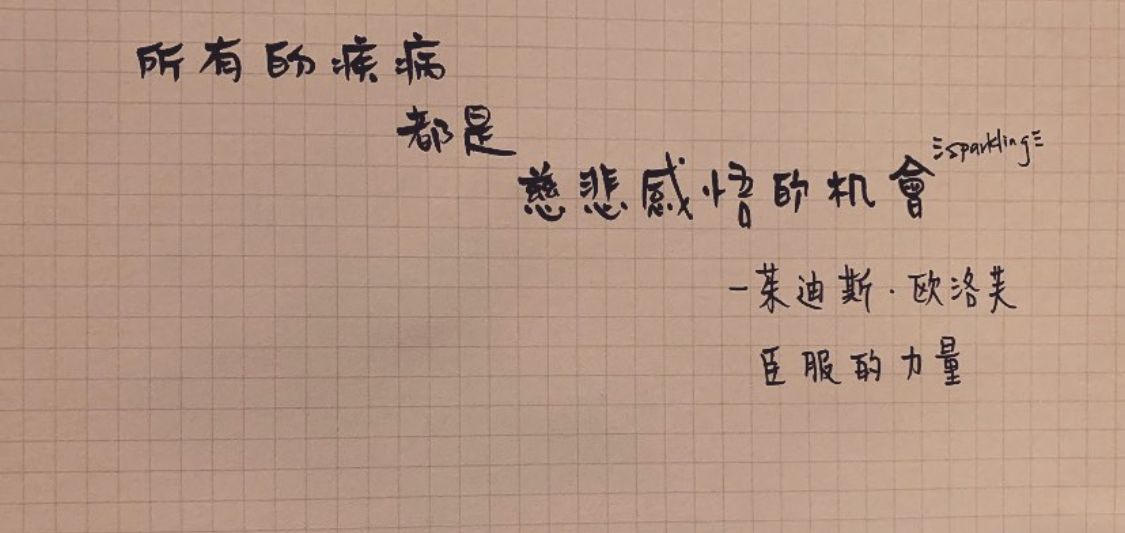 所有的疾病
都是
慈悲感悟的机會
sparkling
-茱迪斯·欧洛芙
臣服的力量